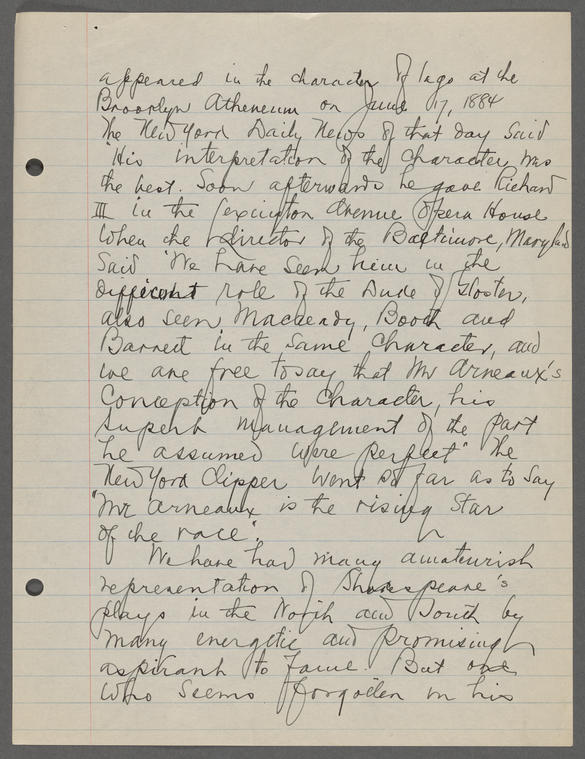 appeared in the character of Iago at the
Brooklyn Atheneum on June 17, 1884
The New York Daily News of that day said
"His interpretation of the character was
the best. Soon afterwards he gave Richard
III in the Lexington Avenue Opera House
when the Director of the Baltimore, Maryland
said "We have seen him in the
difficult role of the Duke of Gloster,
also seen Macready, Booth and
Barrett in the same character, and
we are free to say that Mr Arneaux's
conception of the character, his
superb management of the part
he assumed were perfect" The
New York Clipper went so far as to say
"Mr Arneaux is the rising star
of the race".
We have had many amateurish
representation of Shakespeare's
plays in the North and South by
many energetic and promising
aspirant to fame. But one
who seems forgotten in his